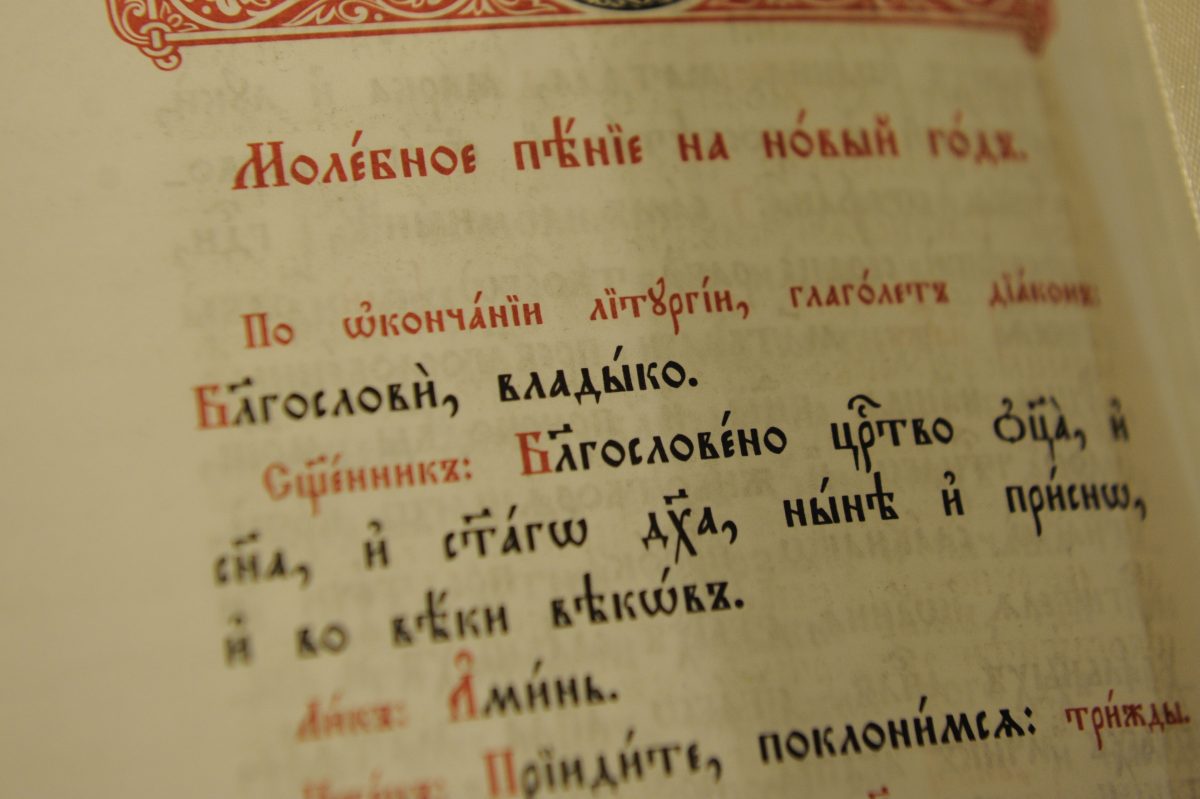 Моле́бное пѣ́нїе на но́вый го́дъ.
По ѡ҆конча́нїи лїтꙋргі́и, глаго́летъ дїа́конъ:
Бл҃гословѝ, влады́ко.
Сщ҃е́нникъ: Бл҃гослове́но цр҇тво ѻ҆ц҃а̀, и҆
сн҃а, и҆ ст҃а́гѡ дх҃а, ны́нѣ и҆ при́снѡ,
и҆ во вѣ́ки вѣкѡ́въ.
Ли́къ: А҆ми́нь.
Прїиди́те, поклони́мсѧ: три́жды.